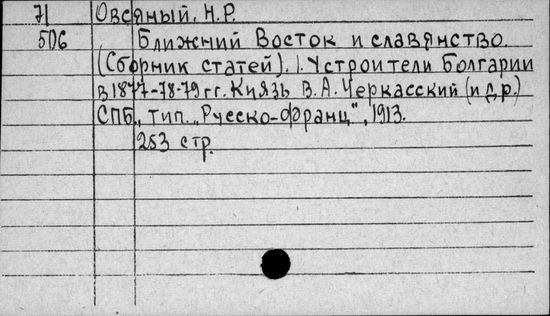 71 Овсяный, Н.Р.
506 Ближний Восток и славянство.
(Сборник статей). 1. Устроители Болгарии
в 1877-78-79 гг. Князь В.А. Черкасский (и др.)
СПБ., тип. „Русско-франц", 1913.
253 стр.